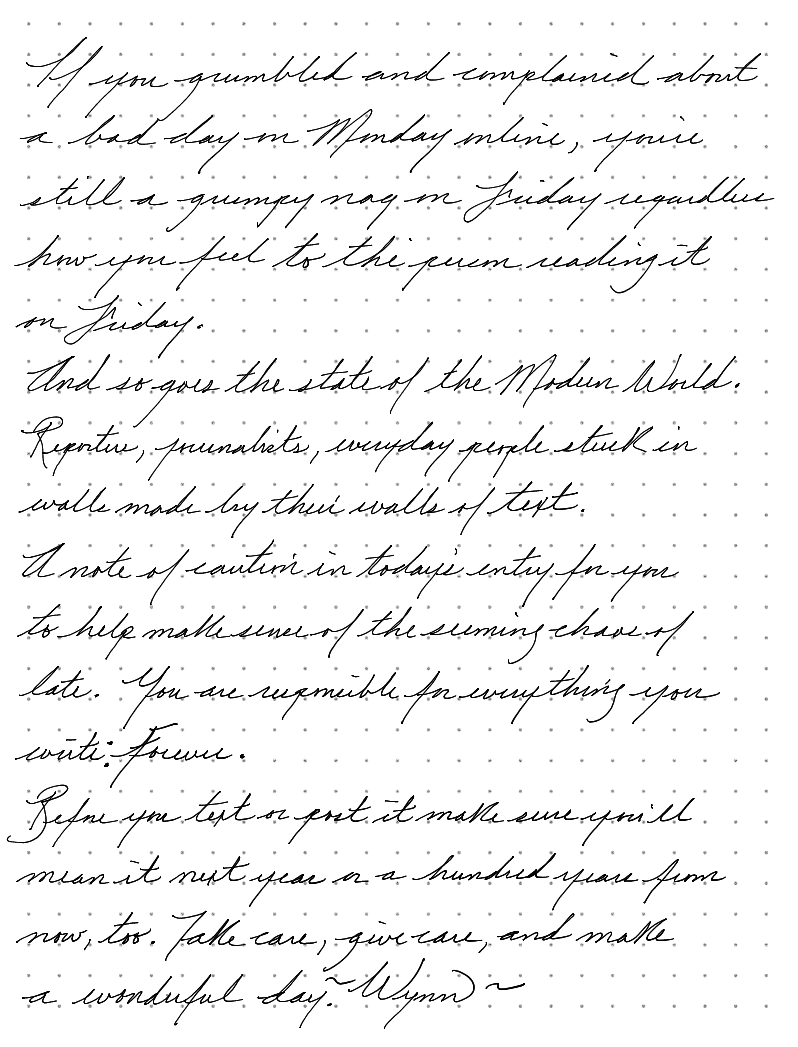 If you grumbled and complained about
a bad day on Monday online, you're
still a grumpy nag on Friday regardless
how you feel to the person reading it
on Friday.
And so goes the state of the Modern World.
Reporters, journalists, everyday people stuck in
walls made by their walls of text.
A note of caution in today's entry for you
to help make sense of the seeming chaos of
late. You are responsible for everything you
write: Forever.
Before you text or post it make sure you'll
mean it next year or a hundred years from
now, too. Take care, give care, and make
a wonderful day. ~ Wynn ~